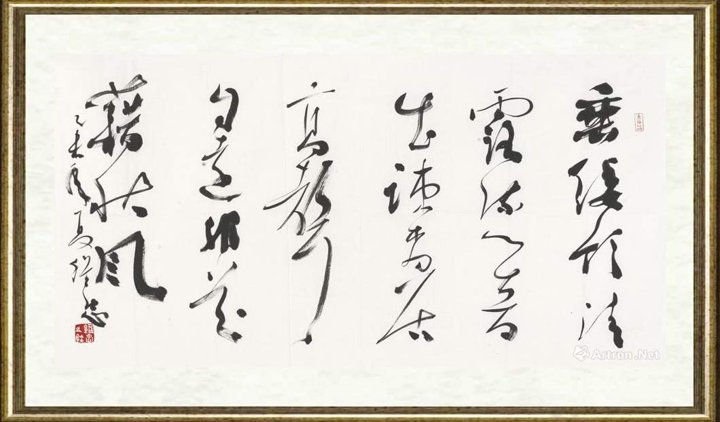 垂緌飲清
露流響
出疎桐居
高聲
自遠非是
藉秋風
乙未年夏
Artron.Net